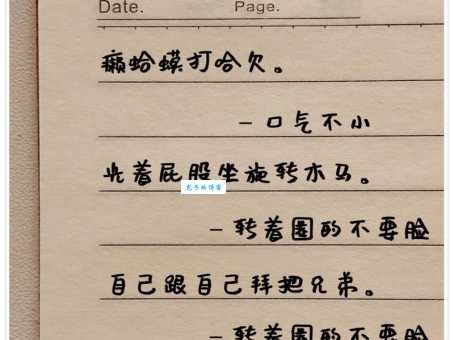 Date. Page.
癞蛤蟆打哈欠。
－口气不小
光着屁股坐旋转木马。
－转着圈的不要脸
自己跟自己拜把兄弟。
－转着圈的不要脸